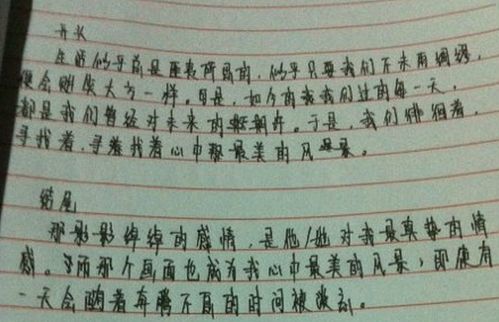 开头
生活似乎前是匪夷所思的,似乎只要我们不未雨绸缪,
便会刚失大方一样。但是,如今的我我们过的每一天,
都是我们曾经对未来的期许。于是,我们徘徊着,
寻找着,寻着找着心中最美的风景。
结尾
那影影绰绰的感情,是他/她对我最真挚的情
感。而那个画面也成为我心中最美的风景,即使有
一天会随着奔腾不息的时间被